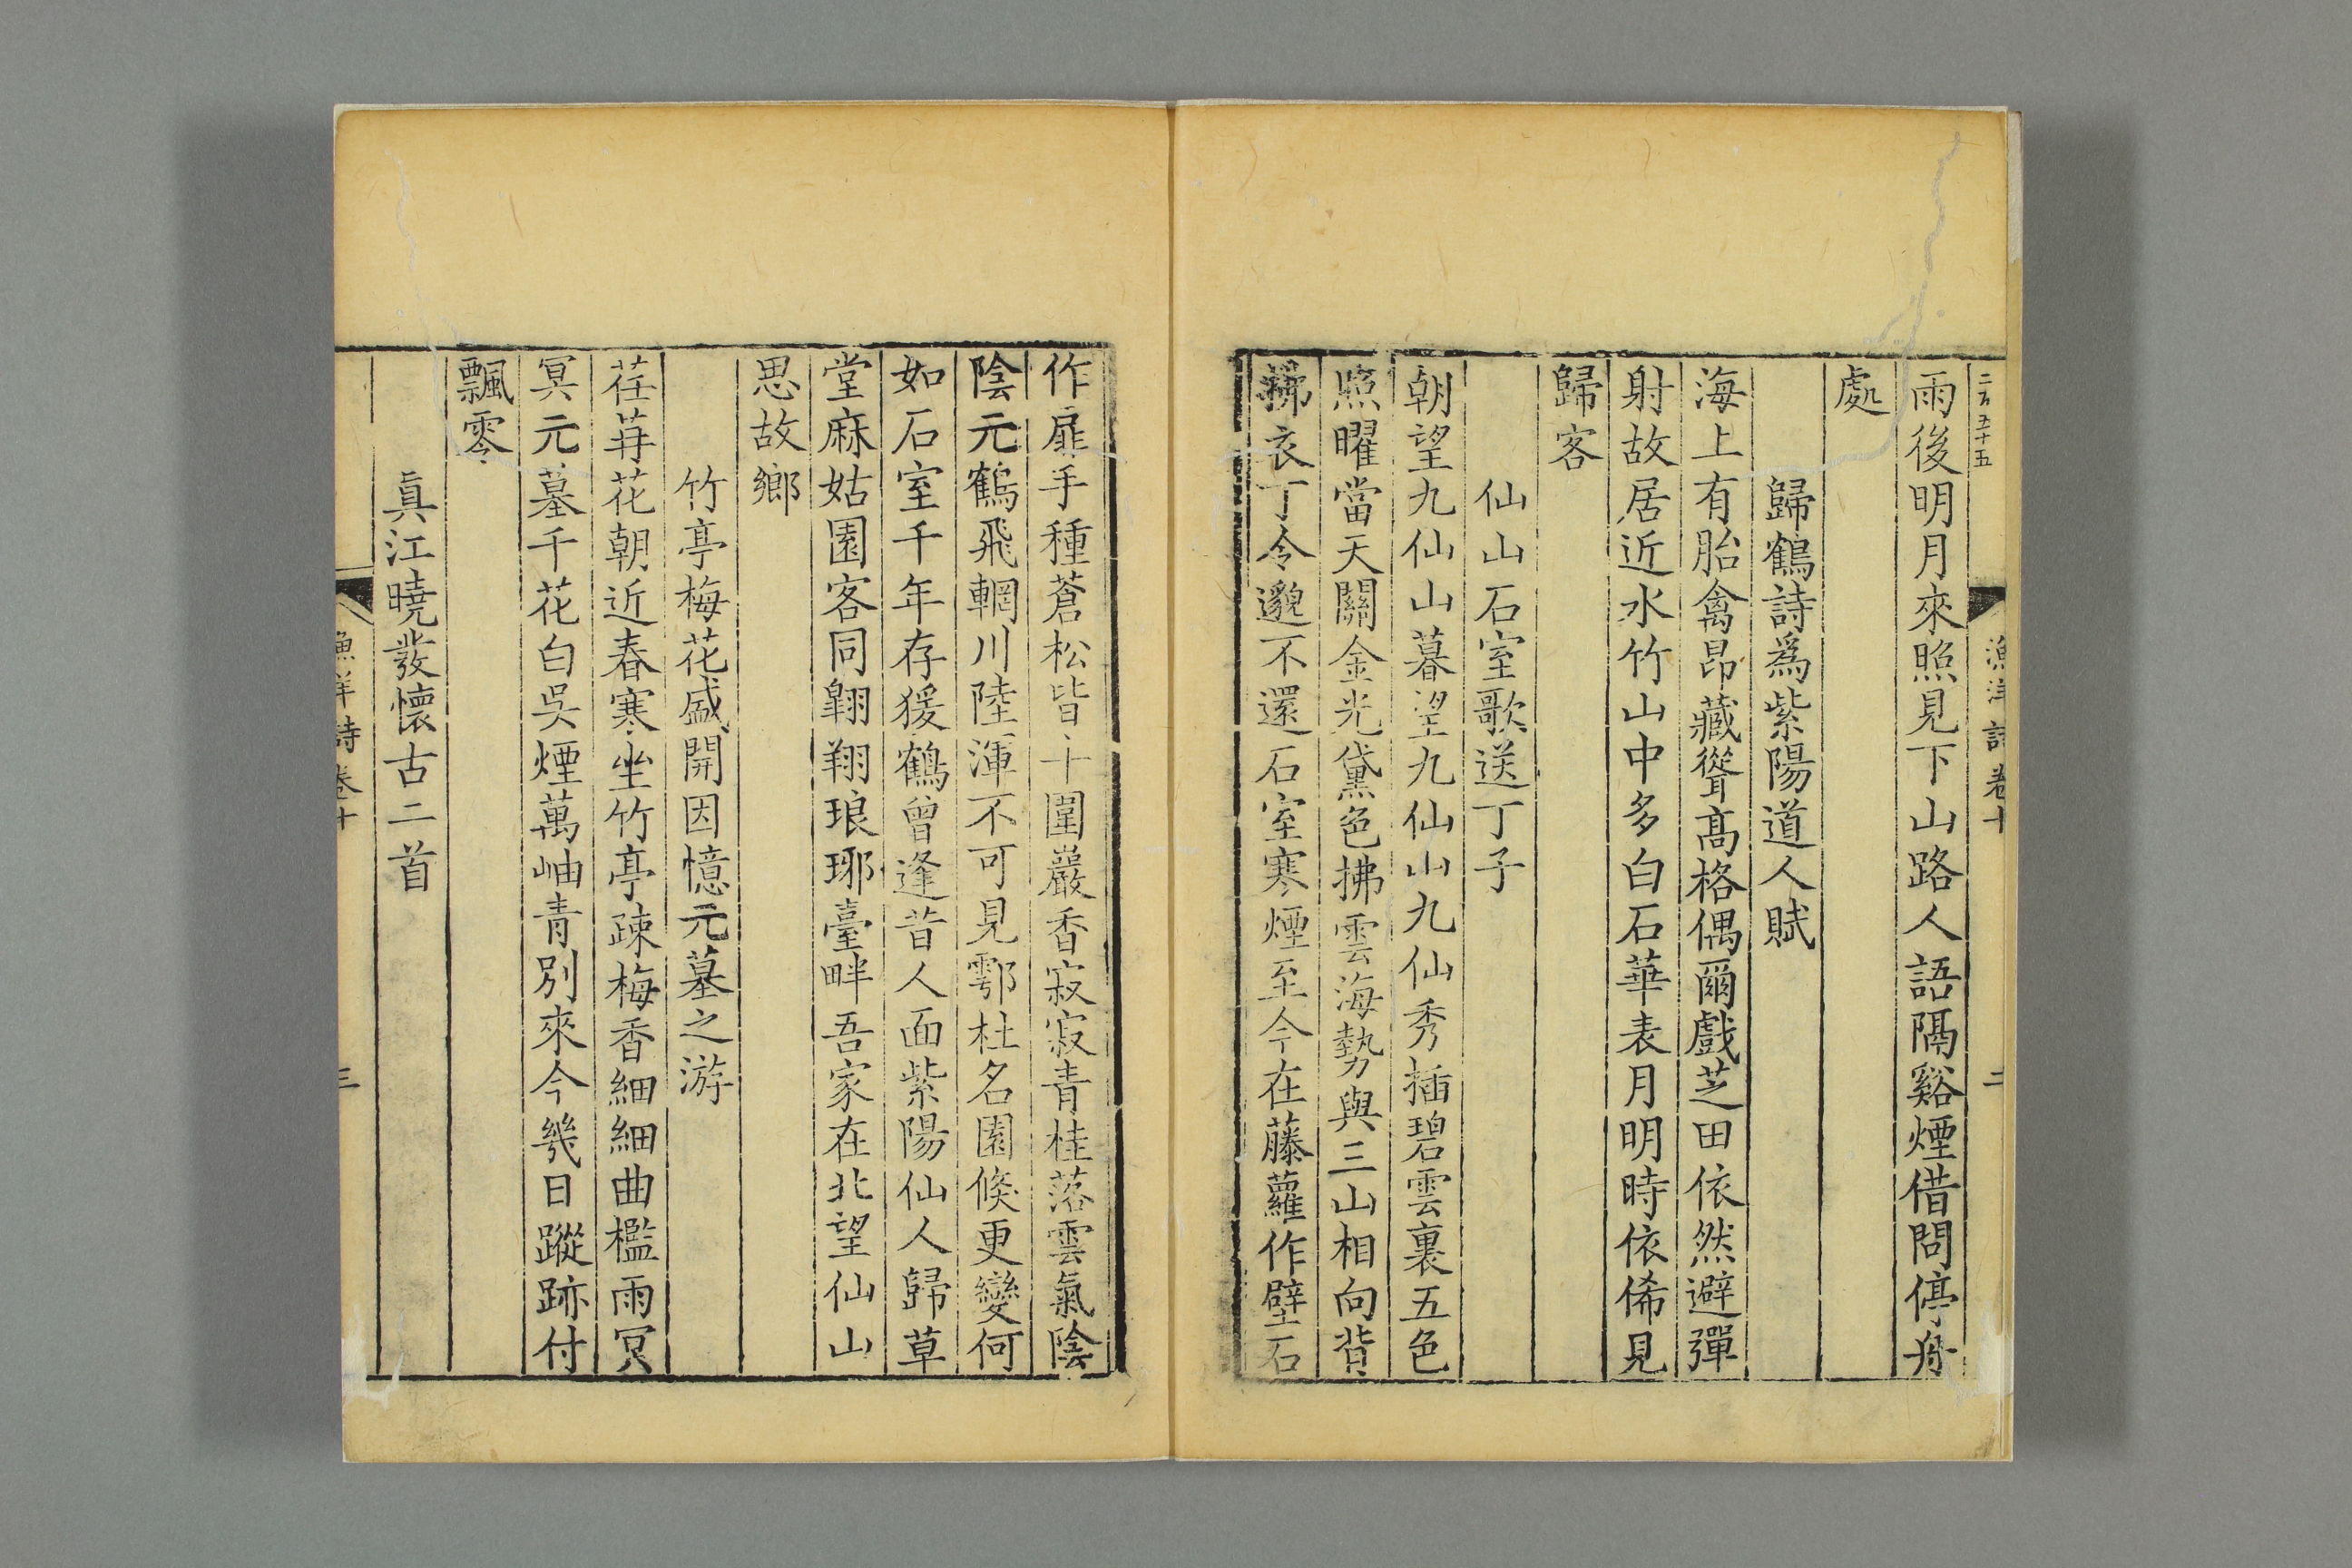 二百五十五
漁洋詩卷十
二
雨後明月來照見下山路人語隔谿煙借問停舟
處
歸鶴詩爲紫陽道人賦
海上有胎禽昂藏聳高格偶爾戲芝田依然避彈
射故居近水竹山中多白石華表月明時依俙見
歸客
仙山石室歌送丁子
朝望九仙山暮望九仙山九仙秀插碧雲裏五色
照曜當天關金光黛色拂雲海勢與三山相向背
拂衣丁令邈不還石室寒煙至今在藤蘿作壁石
作扉手種蒼松皆十圍巖香寂寂青桂落雲氣陰
陰元鶴飛輞川陸渾不可見鄠杜名園倏更變何
如石室千年存猨鶴曾逢昔人面紫陽仙人歸草
堂麻姑園客同翱翔琅琊臺畔吾家在北望仙山
思故鄉
竹亭梅花盛開因憶元墓之游
荏苒花朝近春寒坐竹亭疎梅香細細曲檻雨冥
冥元墓千花白吳煙萬岫青別來今幾日蹤跡付
飄零
真江曉發懷古二首
漁洋詩卷十
三